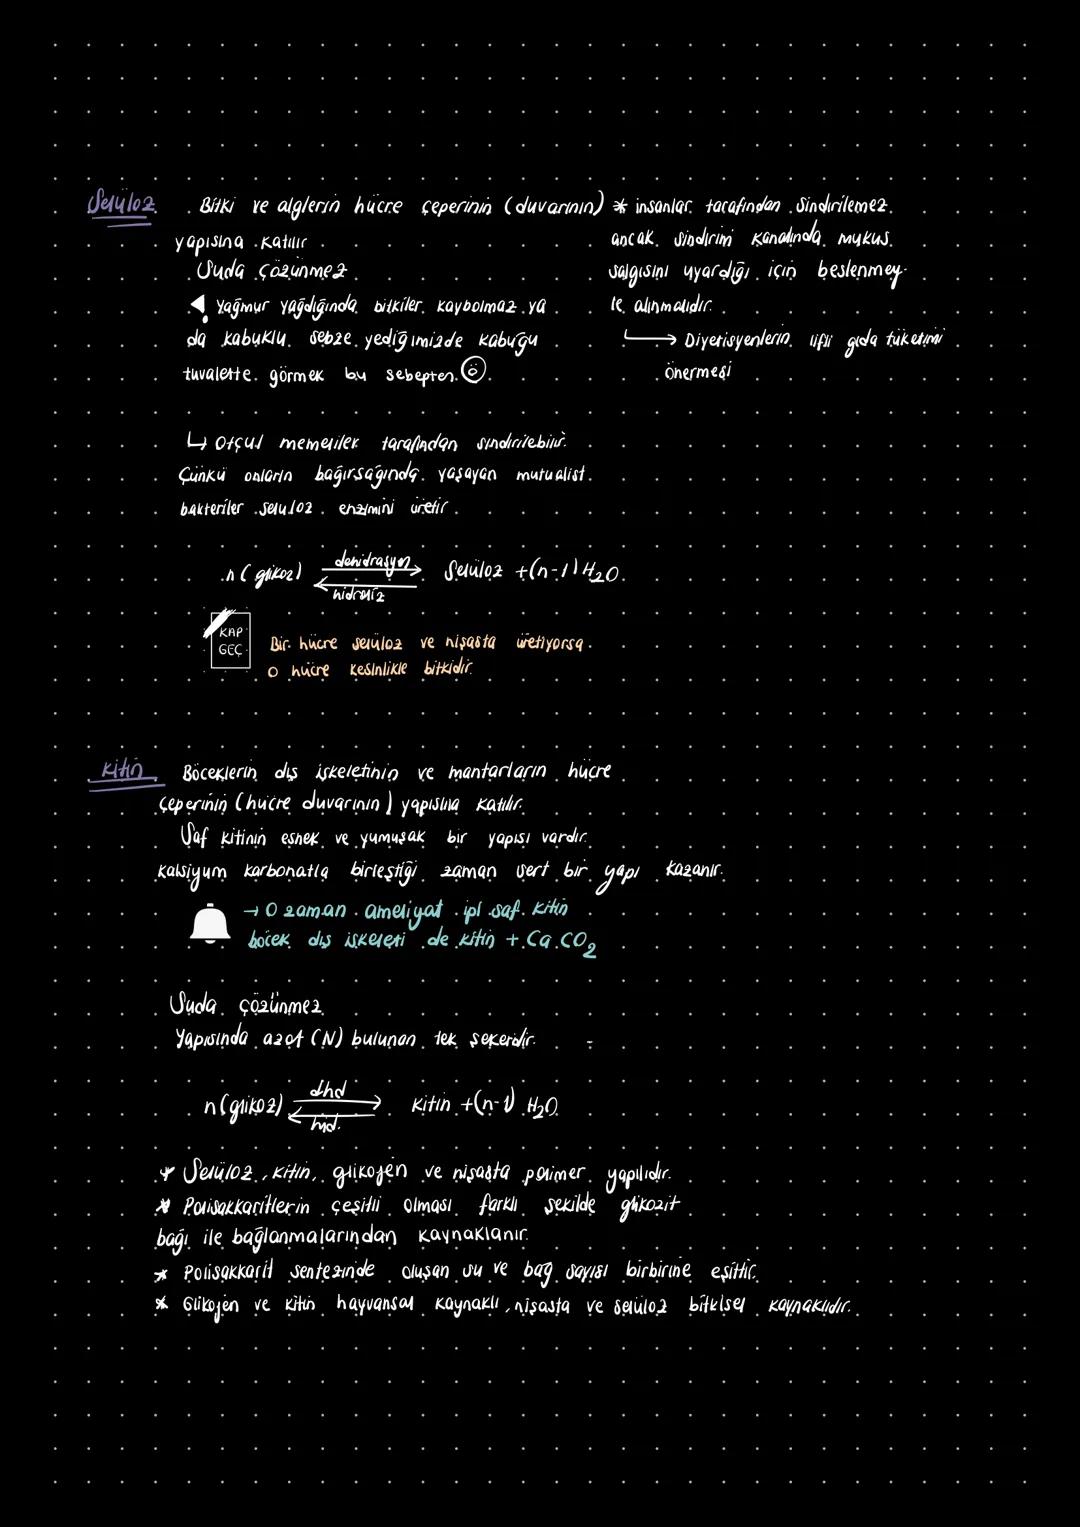 Selüloz
Bitki ve alglerin hücre çeperinin (duvarının)
yapısına katılır
Suda çözünmez
! Yağmur yağdığında bitkiler kaybolmaz ya
da kabuklu sebze yediğimizde kabuğu
tuvalette görmek bu sebepten.
↳ Otçul memeliler tarafından sindirilebilir.
Çünkü onların bağırsağında yaşayan mutualist
bakteriler selüloz enzimini üretir.
* insanlar tarafından sindirilemez
ancak sindirim kanalında mukus
salgısını uyardığı için beslenmey-
le alınmalıdır.
↳ Diyetisyenlerin lifli gıda tüketimi
önermesi
n(glikoz) dehidrasyon ⇌ hidroliz Selüloz + (n-1) H₂O
KAP
GEÇ
Bir hücre selüloz ve nişasta üretiyorsa
o hücre kesinlikle bitkidir.
Kitin
Böceklerin dış iskeletinin ve mantarların hücre
çeperinin (hücre duvarının) yapısına katılır.
Saf kitinin esnek ve yumuşak bir yapısı vardır.
kalsiyum karbonatla birleştiği zaman sert bir yapı kazanır.
→ O zaman ameliyat ipi saf kitin
böcek dış iskeleti de kitin + CaCO₂
Suda çözünmez
Yapısında azot (N) bulunan tek şekerdir.
n(glikoz) dhd ⇌ hid. Kitin + (n-1) H₂O
* Selüloz, kitin, glikojen ve nişasta polimer yapılıdır.
* Polisakkaritlerin çeşitli olması farklı şekilde glikozit
bağı ile bağlanmalarından kaynaklanır.
* Polisakkarit sentezinde oluşan su ve bağ sayısı birbirine eşittir.
* Glikojen ve kitin hayvansal kaynaklı, nişasta ve selüloz bitkisel kaynaklıdır.